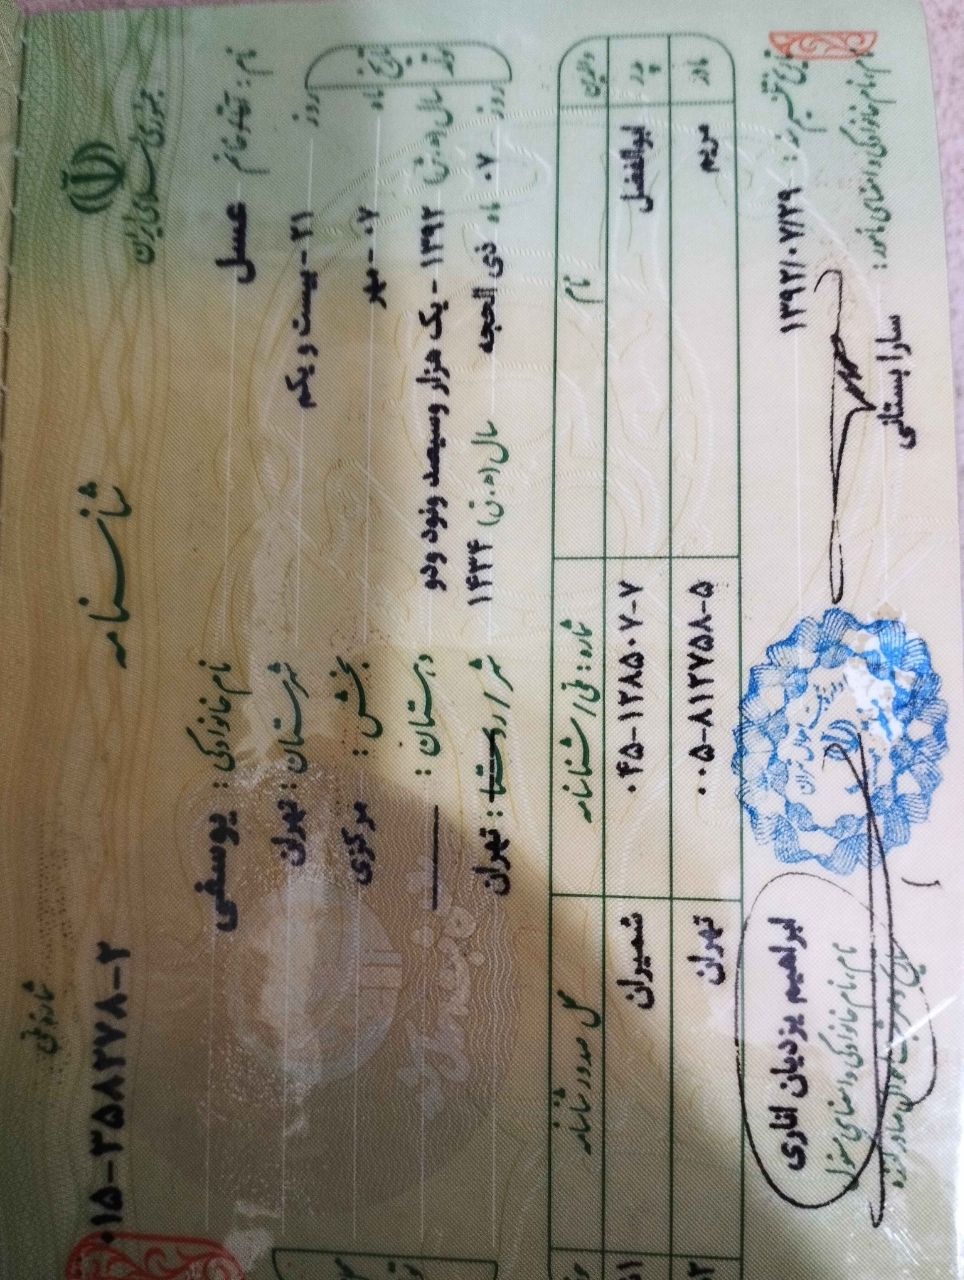 جمهوری اسلامی ایران
شناسنامه
شماره ملی
۰۱۵-۲۵۸۲۲۷۸-۲
نام: عسل
نام خانوادگی: یوسفی
تاریخ تولد
روز ۲۱-بیست و یکم
شهرستان: تهران
ماه ۰۷-مهر
بخش: مرکزی
سال (ه.ش) ۱۳۹۲ - یک هزار وسیصد ونود ودو
دهستان: ———
روز ۰۷ ماه ذی الحجه سال (ه.ق) ۱۴۳۴
شهر/روستا: تهران
والدین نام شماره: ملی/شناسنامه محل صدور شناسنامه
پدر ابوالفضل ۰۴۵-۱۲۸۵۰۷-۷ شمیران
مادر مریم ۰۰۵-۸۱۲۷۵۸-۵ تهران
تاریخ تنظیم سند: ۱۳۹۲/۰۷/۲۹
نام، نام خانوادگی و امضای مامور:
سارا بستانی
ابراهیم یزدیان اناری
نام، نام خانوادگی و امضای مسئول